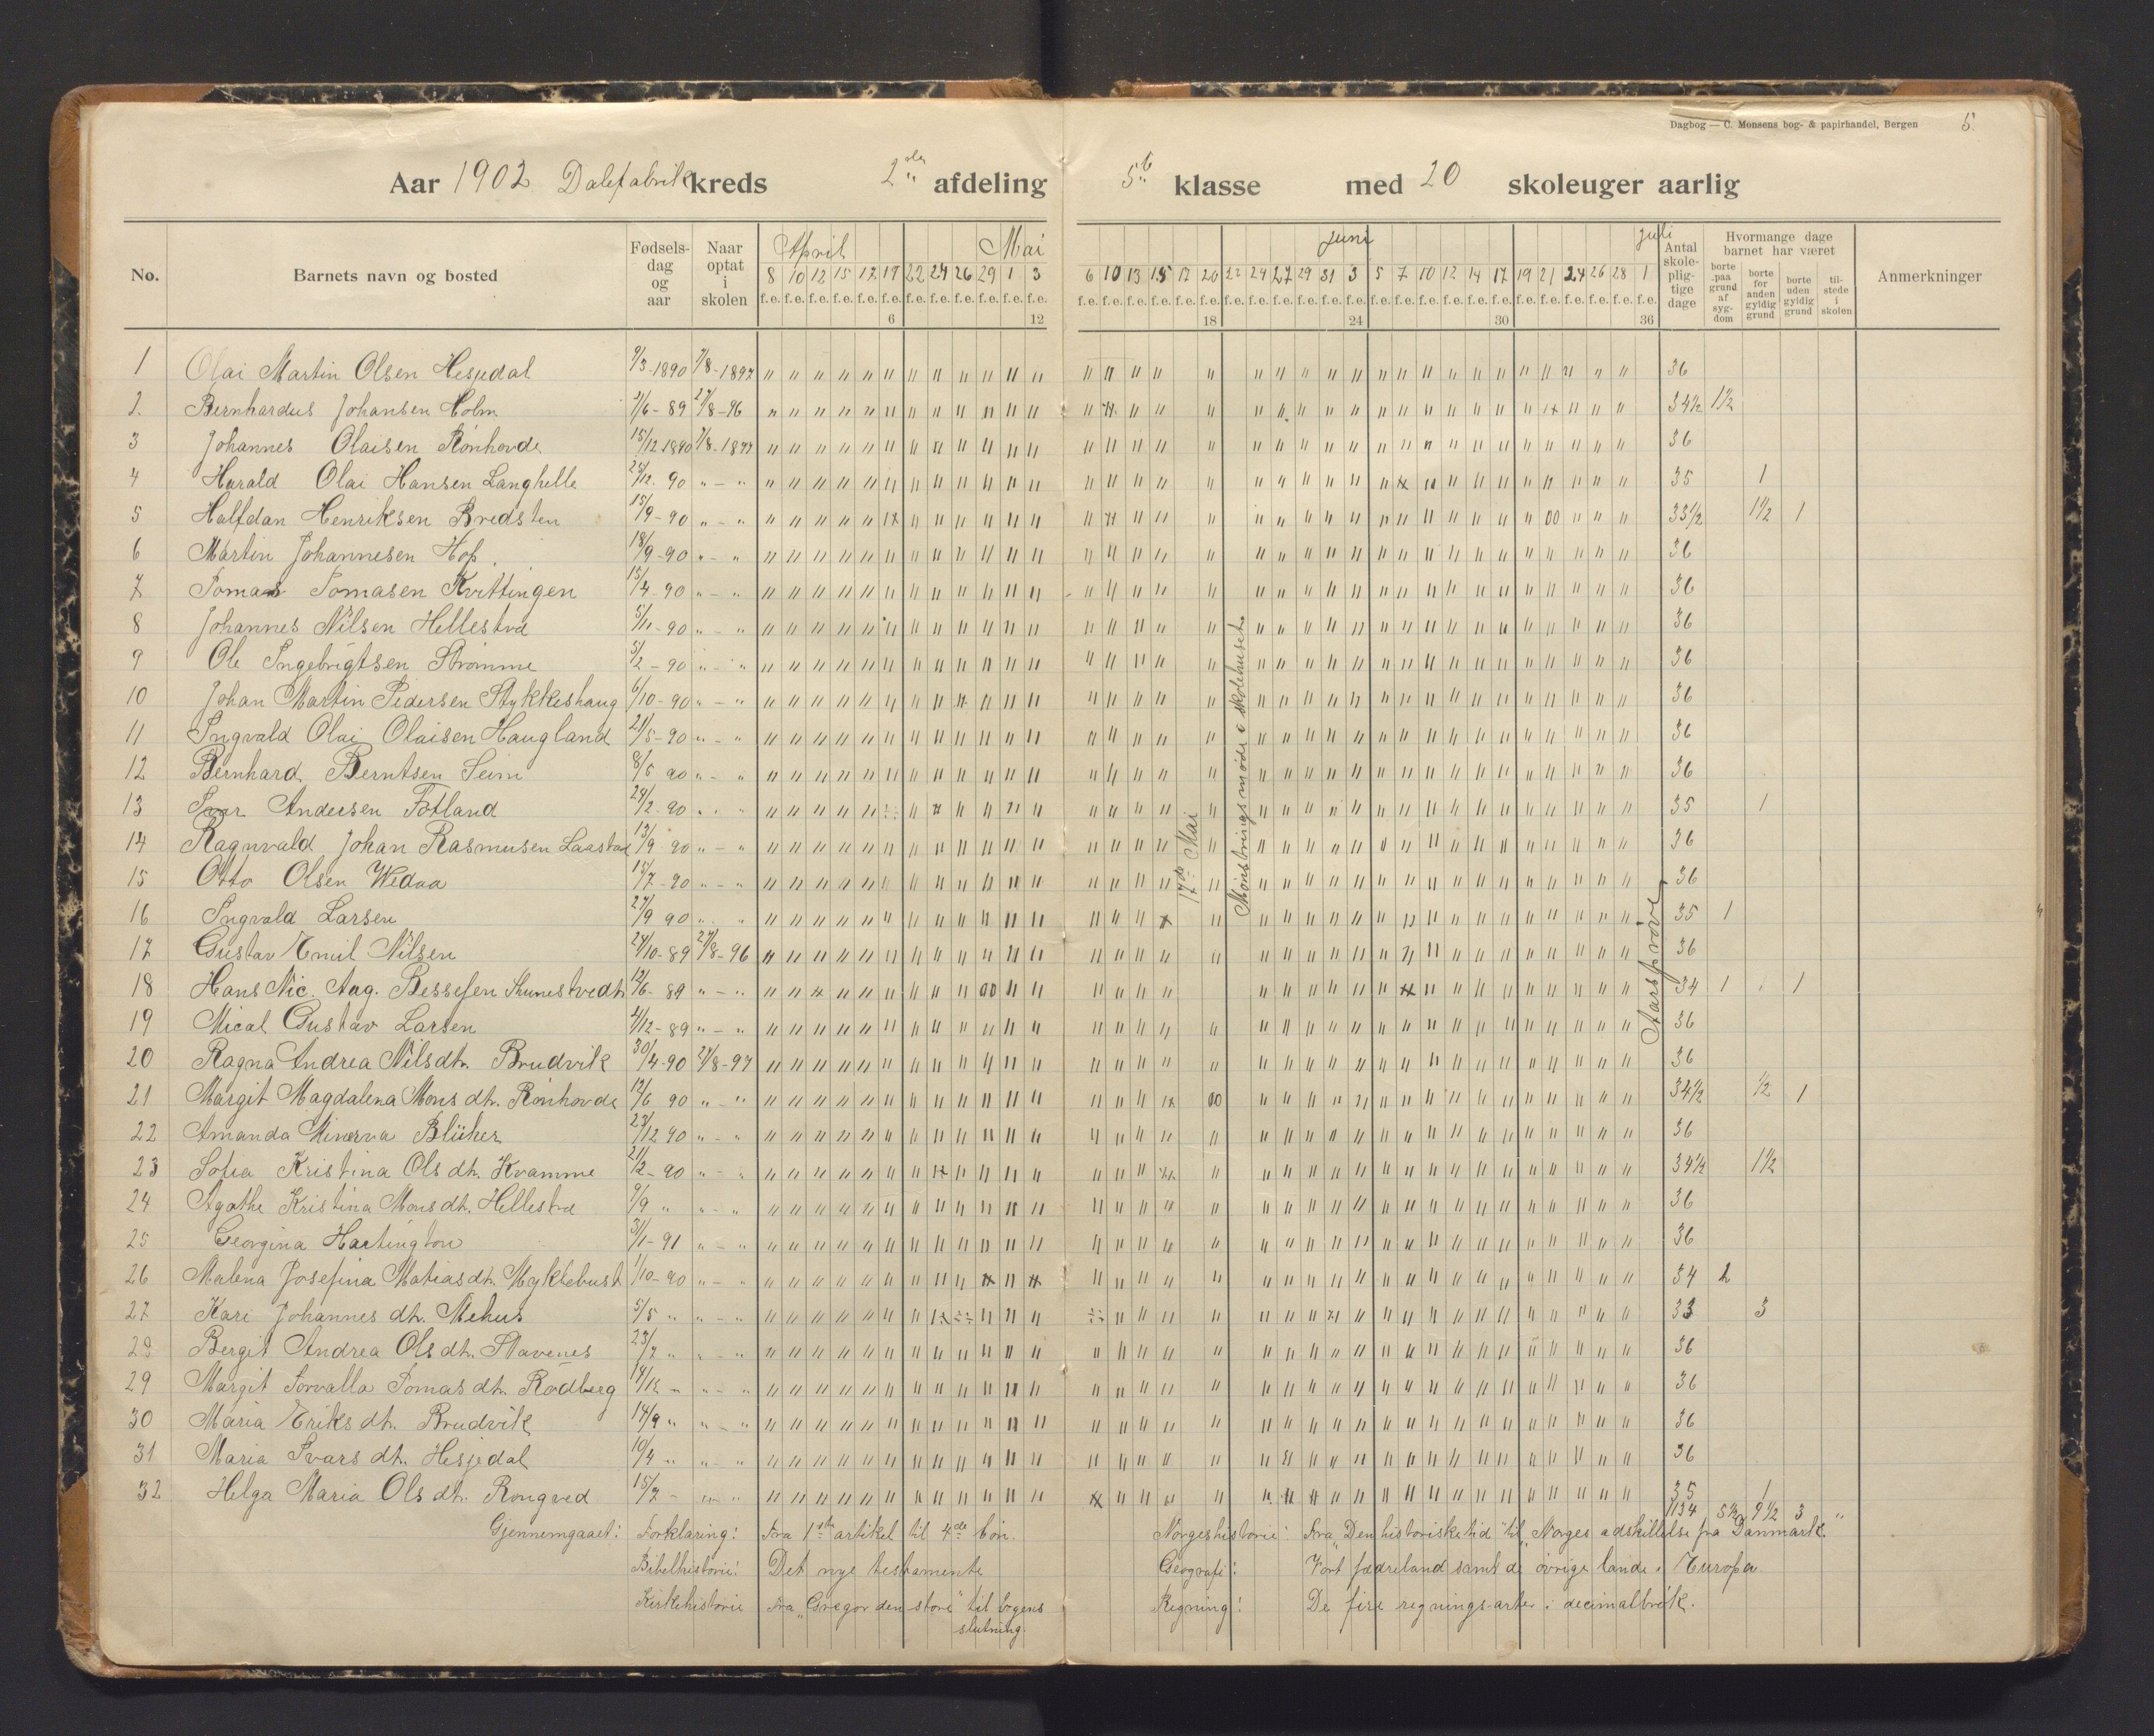 Dagbog — C. Monsens bog- & papirhandel, Bergen 5.
Aar 1902 Dalefabrik kreds 2den afdeling 5te klasse med 20 skoleuger aarlig
No. Barnets navn og bosted Fødselsdag og aar Naar optat i skolen April Mai Juni Juli Antal skolepligtige dage Hvormange dage barnet har været Anmerkninger
borte paa grund af sygdom borte for anden gyldig grund borte uden gyldig grund tilstede i skolen
8 10 12 15 17 19 22 24 26 29 1 3 6 10 13 15 17 20 22 24 27 29 31 3 5 7 10 12 14 17 19 21 24 26 28 1
f.e. f.e. f.e. f.e. f.e. f.e. f.e. f.e. f.e. f.e. f.e. f.e. f.e. f.e. f.e. f.e. f.e. f.e. f.e. f.e. f.e. f.e. f.e. f.e. f.e. f.e. f.e. f.e. f.e. f.e. f.e. f.e. f.e. f.e. f.e. f.e.
6 12 18 24 30 36
1 Olai Martin Olsen Hesjedal 9/3-1890 7/8-1897 36
2. Bernhardus Johansen Holm 3/6-89 27/8-96 34½ 1½
3 Johannes Olaisen Rönhovde 15/12 1890 7/8-1897 36
4 Harald Olai Hansen Langhelle 25/12 90 " - " 35 1
5 Halfdan Henriksen Bredsten 15/9-90 " - " 33½ 1½ 1
6 Martin Johannesen Hop. 18/9-90 " - " 36
7 Tomas Tomasen Kvittingen 15/4-90 " - " 36
8 Johannes Nilsen Hellestvd 5/11-90 " - " 36
9 Ole Ingebrigtsen Strömme 5/2-90 " - " 36
10 Johan Martin Pedersen Stykkeshaug 6/10-90 " - " 36
11 Ingvald Olai Olaisen Haugland 21/5-90 " - " 36
12 Bernhard Berntsen Seim 8/5 90 " - " 36
13 Ivar Andersen Fotland 24/2-90 " " 35 1
14 Ragnvald Johan Rasmusen Laastad 13/9 90 " - " 36
15 Otto Olsen Wedaa 15/7-90 " - " 36
16 Ingvald Larsen 27/9 90 " " 35 1
17 Gustav Emil Nilsen 24/10-89 27/8-96 36
18 Hans Nic. Aag. Bessesen Skunestvedt 12/6-89 " - " 34 1 1
19 Mical Gustav Larsen 4/12-89 " - " 36
20 Ragna Andrea Nilsdtr. Brudvik 30/4-90 27/8-97 36
21 Margit Magdalena Mons dtr. Rönhovde 12/6 90 " - " 34½ ½ 1
22 Amanda Minerva Blüher 23/12 90 " - " 36
23 Sofia Kristina Ols dtr. Kvamme 21/2-90 " - " 34½ 1½
24 Agathe Kristina Mons dtr. Hellestvd 9/9 " " - " 36
25 Georgina Hartington 3/1-91 " - " 36
26 Malena Josefina Matias dtr. Myklebust 1/10-90 " - " 34 2
27 Kari Johannes dtr. Mehus 5/5 " " - " 33 3
28 Bergit Andrea Ols dtr. Stavenes 23/7 " " - " 36
29 Margit Torvalla Tomas dtr. Rödberg 14/12 " " - " 36
30 Maria Eriks dtr. Brudvik 14/9 " " - " 36
31 Maria Ivars dtr. Hesjedal 10/4 " " - " 36
32 Helga Maria Ols dtr. Rongved 15/7 - " " 35 1
17de Mai
Mönstringsmöde i skolehuset
Aarspröve
1134 5½ 9½ 3 "
Gjennemgaaet: Forklaring: Fra 1ste artikel til 4de bön. Norgeshistorie: Fra "Den historiske tid" til "Norges adskillelse fra Danmark."
Bibelhistorie: Det nye testamente Geografi: Vort fædreland samt de övrige lande i Europa.
Kirkehistorie Fra "Gregor den store" til bogens slutning. Regning: De fire regningsarter i decimalbrök.